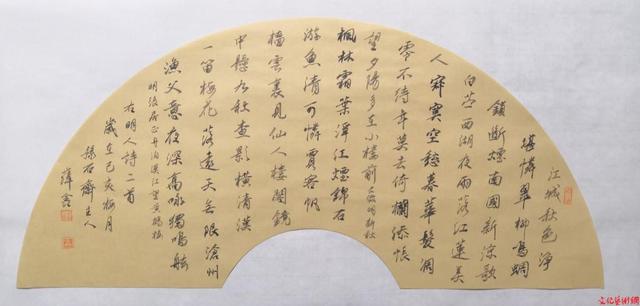 江城秋色淨
堪憐翠柳鳴蜩
鎖斷煙南國新涼歌
白苧西湖夜雨落江蓮美
人寂寞空愁暮華髮凋
零不待年莫去倚欄添悵
望夕陽多在小樓前 新秋
楓林霜葉淨江煙錦石
游魚清可憐賈客帆
檣雲裏見仙人樓閣鏡
中懸九秋查影橫清漢
一笛梅花落遠天無限滄州
漁父意夜深高咏獨鳴舷
明張居正舟泊漢江望黃鶴樓
右明人詩二首
歲在己亥梅月
石齋主人
薛
文化藝術網